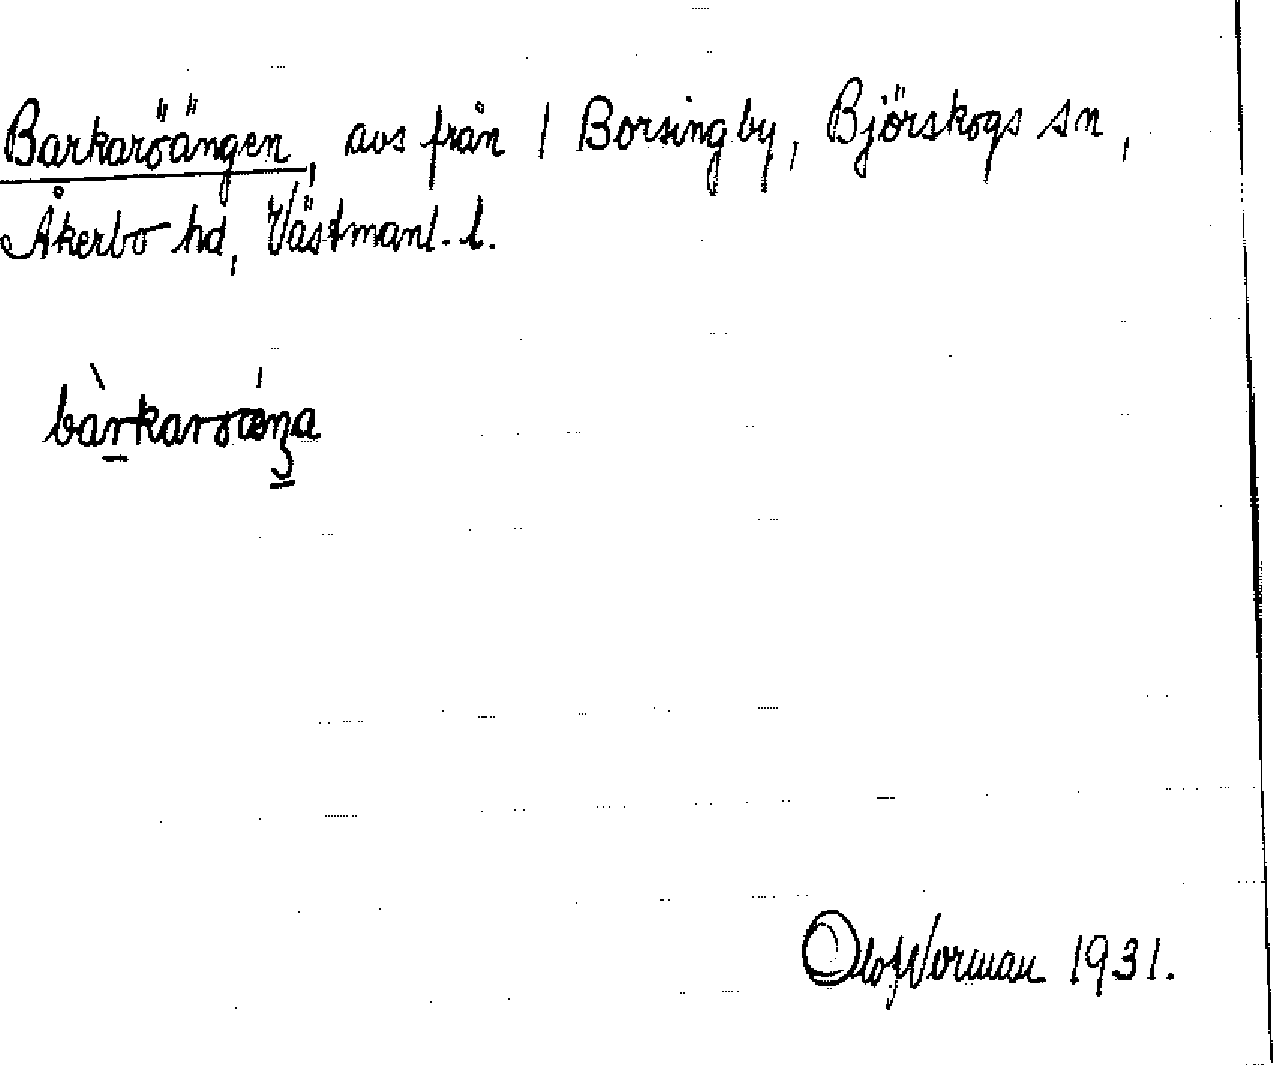 Barkaröängen, avs från 1 Borsingby, Björskogs sn,
Åkerbo hd, Västmanl. l.
bàrkarøæ̀ŋa
Olof Norman 1931.